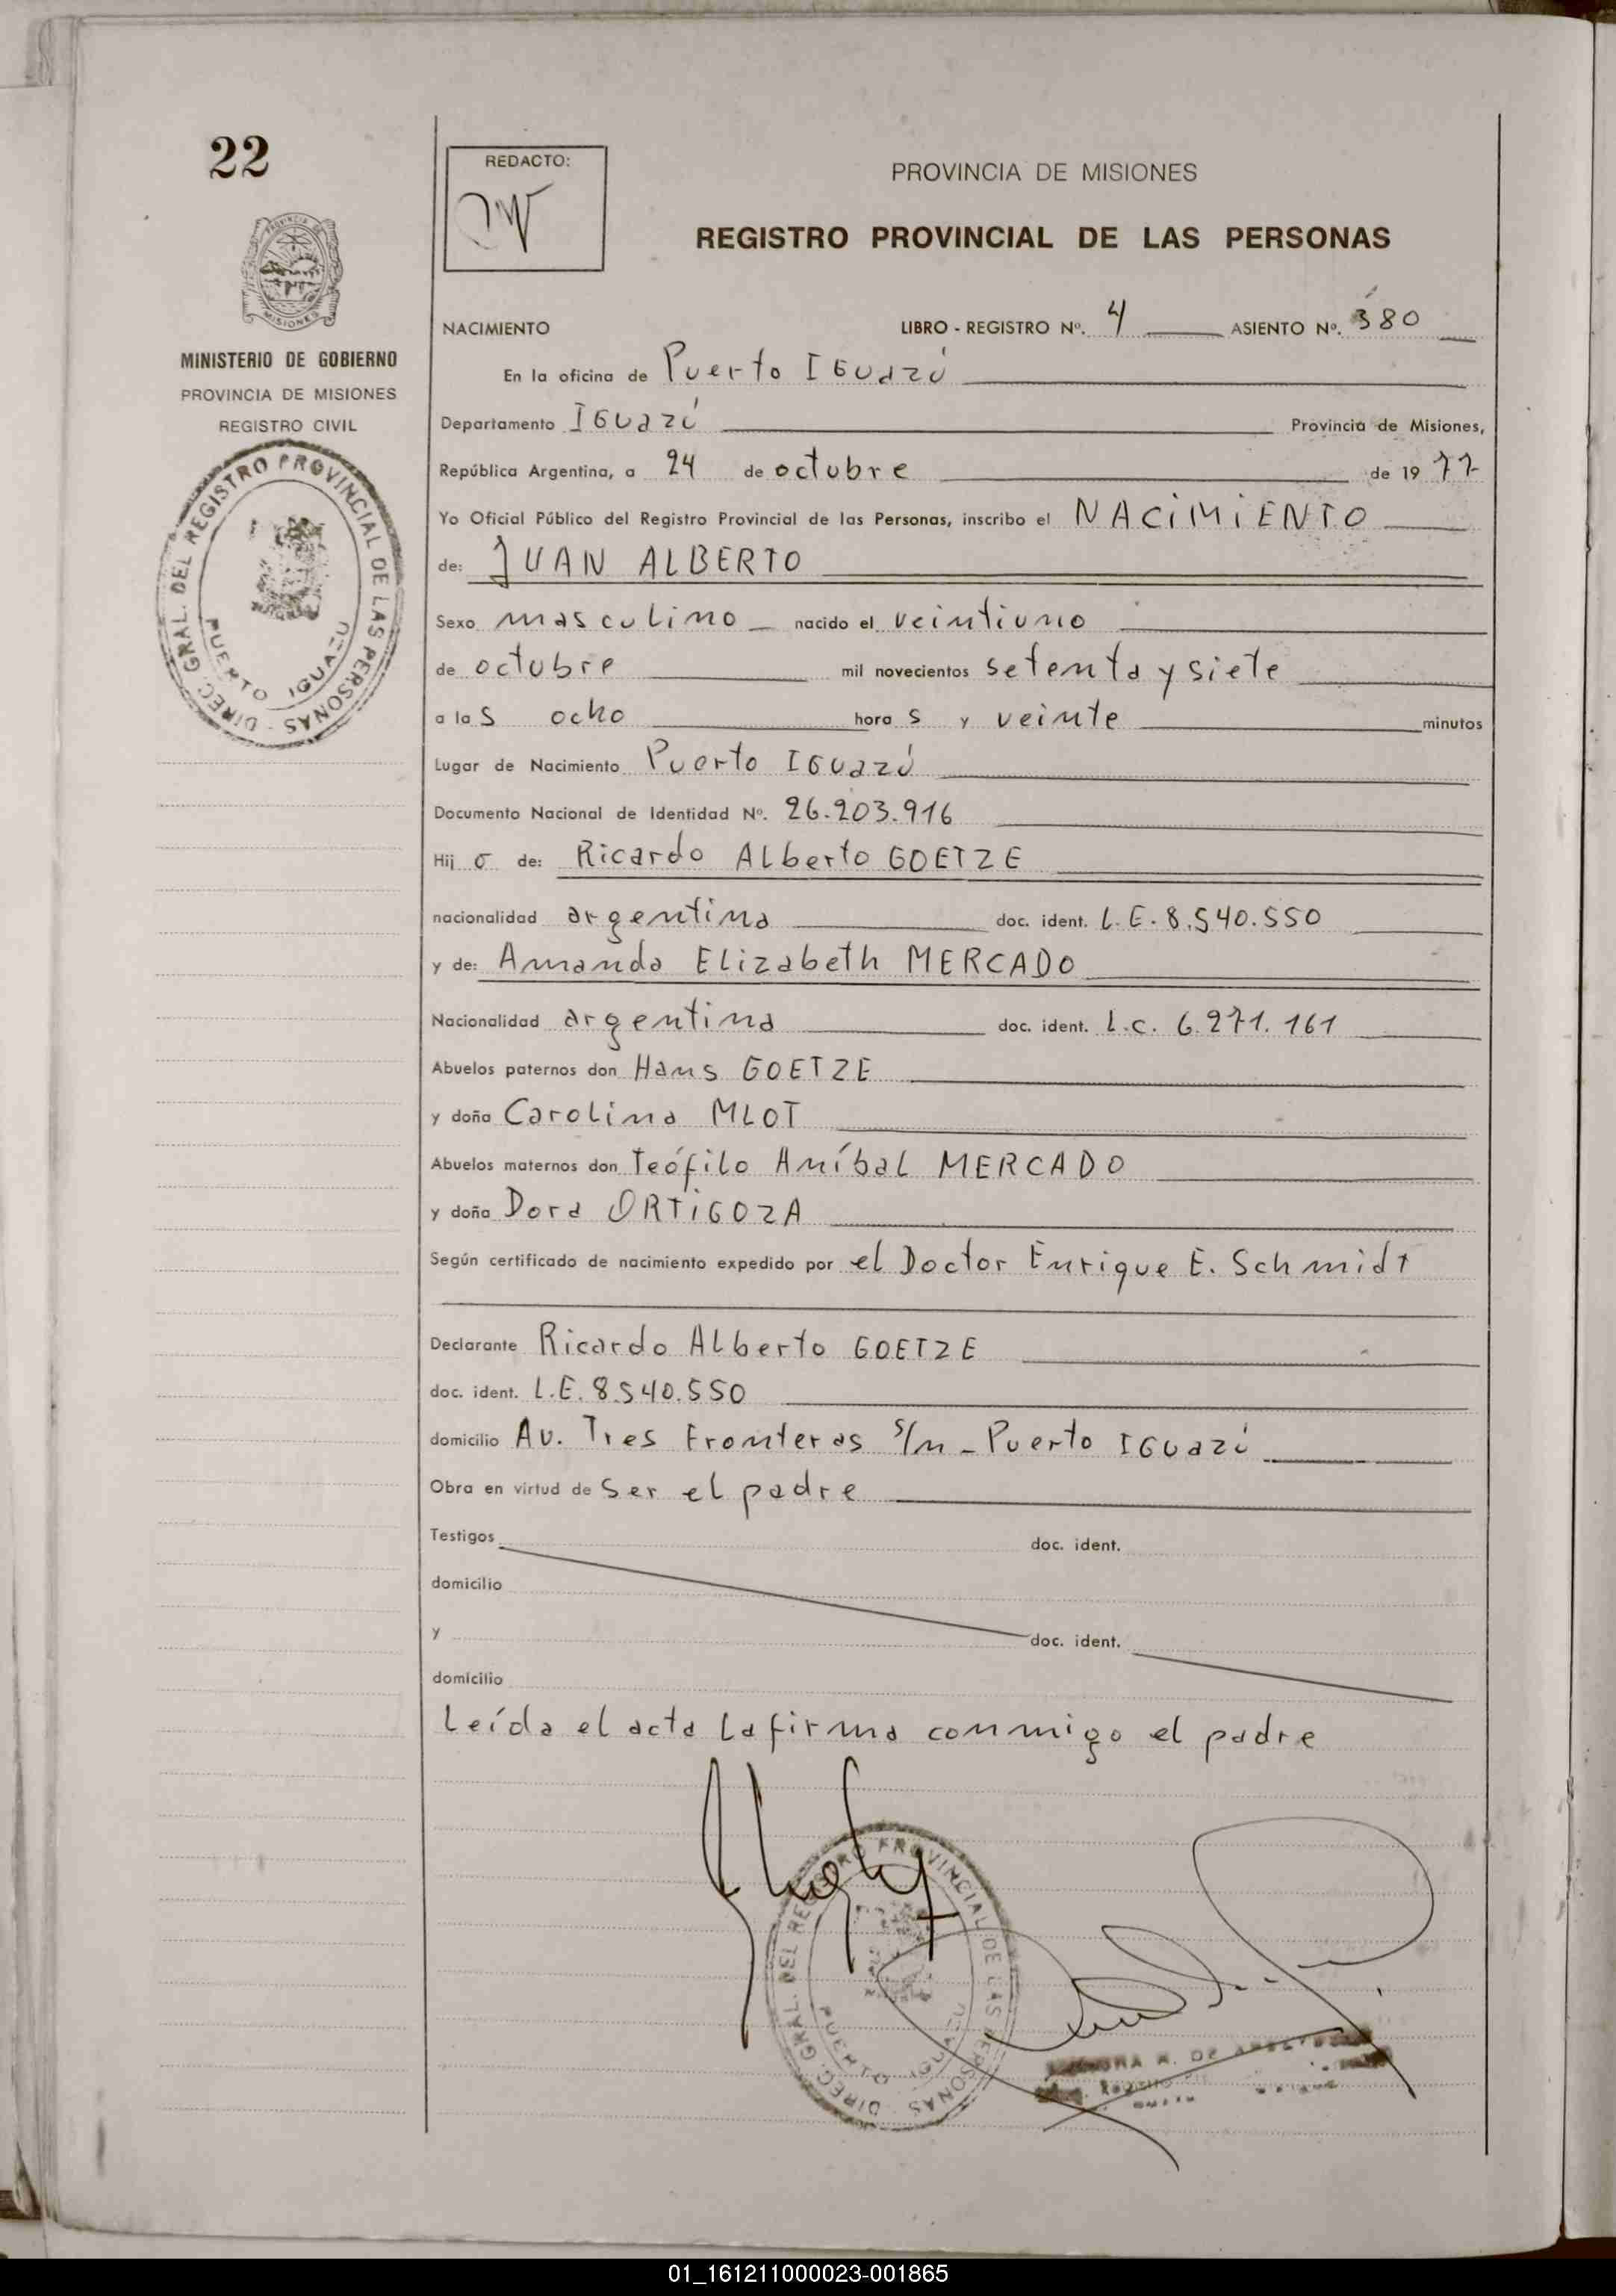 22
REDACTO:
PROVINCIA DE MISIONES
REGISTRO PROVINCIAL DE LAS PERSONAS
PROVINCIA DE
MISIONES
MINISTERIO DE GOBIERNO
PROVINCIA DE MISIONES
REGISTRO CIVIL
DIREC. GRAL. DEL REGISTRO PROVINCIAL DE LAS PERSONAS -
PUERTO IGUAZU
NACIMIENTO LIBRO - REGISTRO Nº. 4 ASIENTO Nº. 380
En la oficina de Puerto IGUazú
Departamento IGUazú Provincia de Misiones,
República Argentina, a 24 de octubre de 1977
Yo Oficial Público del Registro Provincial de las Personas, inscribo el NACIMIENTO
de: JUAN ALBERTO
Sexo masculino nacido el veintiuno
de octubre mil novecientos setenta y siete
a las ocho horas y veinte minutos
Lugar de Nacimiento Puerto IGUazú
Documento Nacional de Identidad Nº. 26.203.916
Hijo de: Ricardo Alberto GOETZE
nacionalidad argentina doc. ident. L.E. 8.540.550
y de: Amanda Elizabeth MERCADO
Nacionalidad argentina doc. ident. L.C. 6.271.161
Abuelos paternos don Hans GOETZE
y doña Carolina MLOT
Abuelos maternos don Teófilo Aníbal MERCADO
y doña Dora ORTIGOZA
Según certificado de nacimiento expedido por el Doctor Enrique E. Schmidt
Declarante Ricardo Alberto GOETZE
doc. ident. L.E. 8.540.550
domicilio Av. Tres Fronteras s/n - Puerto IGUazú
Obra en virtud de ser el padre
Testigos doc. ident.
domicilio
y doc. ident.
domicilio
Leída el acta la firma conmigo el padre
DIREC. GRAL. DEL REGISTRO PROVINCIAL DE LAS PERSONAS
PUERTO IGUAZU
01_161211000023-001865